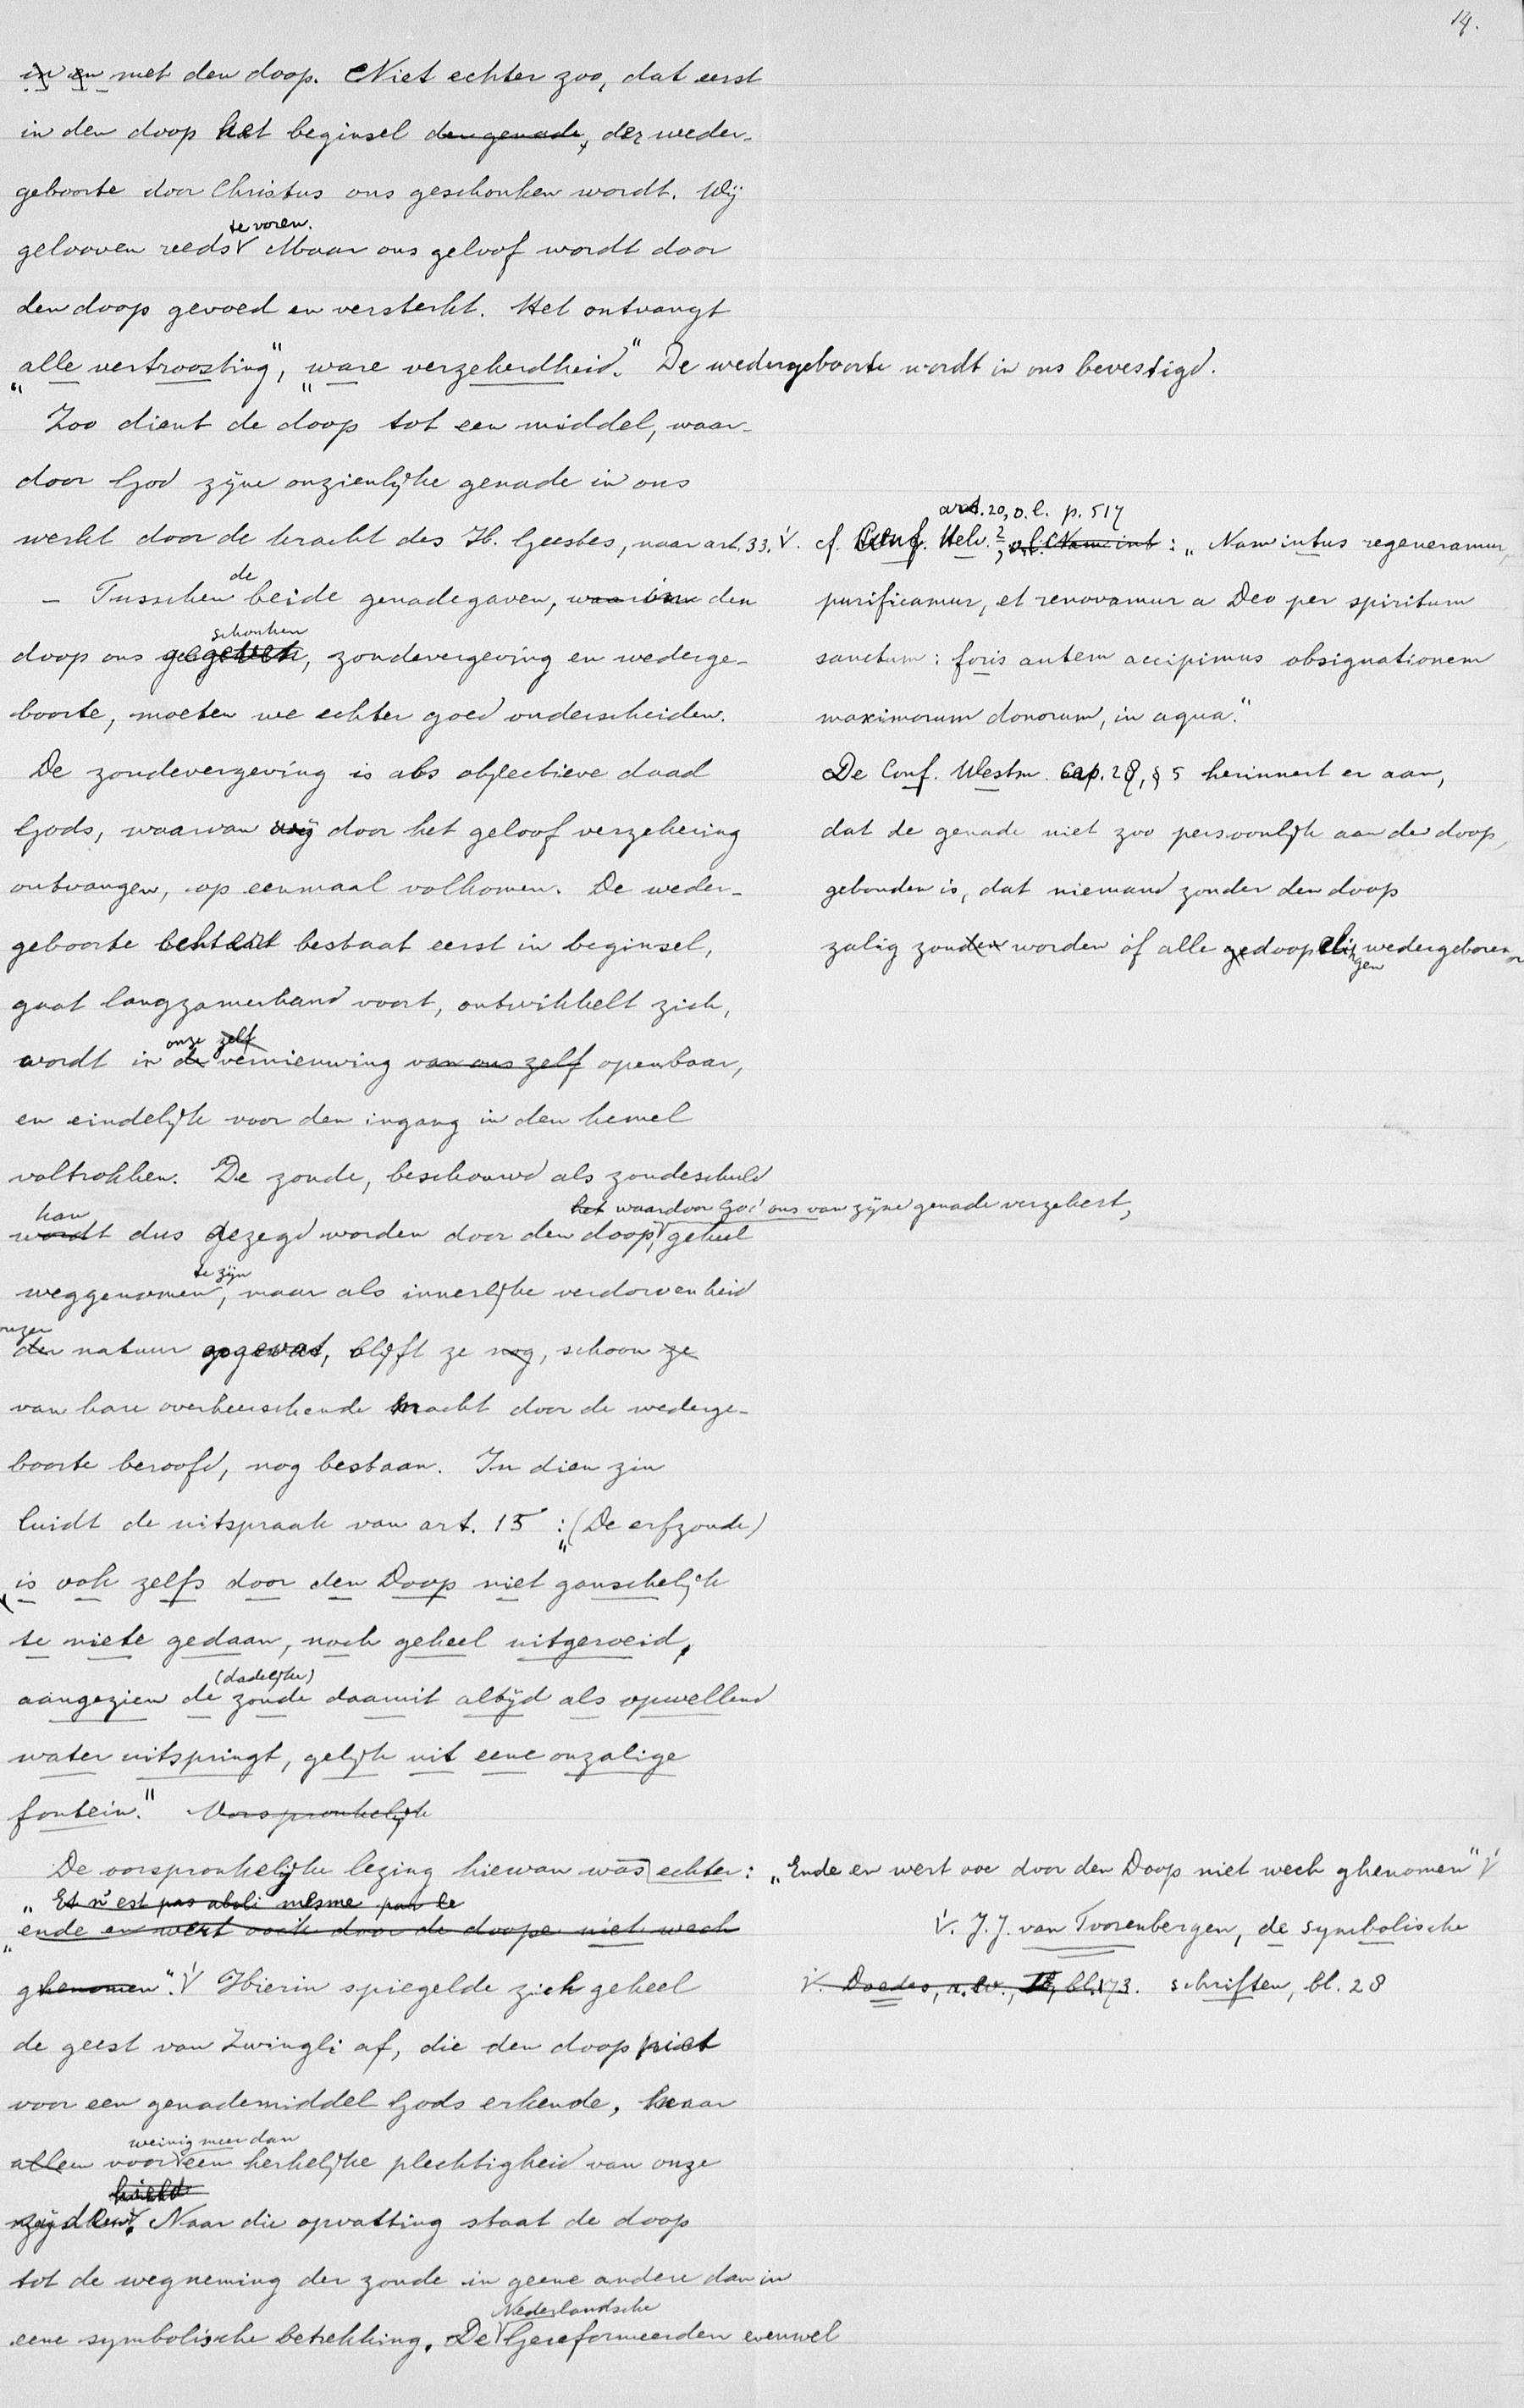 14.
in en met den doop. Niet echter zoo, dat eerst
in den doop het beginsel der genade, der weder-
geboorte door Christus ons geschonken wordt. Wij
te voren.
gelooven reeds V Maar ons geloof wordt door
den doop gevoed en versterkt. Het ontvangt
„alle vertroosting", „ware verzekerdheid." De wedergeboorte wordt in ons bevestigd.
Zoo dient de doop tot een middel, waar-
door God zijne onzienlijke genade in ons
werkt door de kracht des H. Geestes, naar art. 33. V.
de
- Tusschen beide genadegaven, waarin den
schonken
doop ons ge, zondevergeving en wederge-
boorte, moeten we echter goed onderscheiden.
De zondevergeving is als objectieve daad
Gods, waarvan wij door het geloof verzekering
ontvangen, op eenmaal volkomen. De weder-
geboorte echter bestaat eerst in beginsel,
gaat langzamerhand voort, ontwikkelt zich,
onze zelf
wordt in de vernieuwing van ons zelf openbaar,
en eindelijk voor den ingang in den hemel
voltrokken. De zonde, beschouwd als zondeschuld
kan het waardoor God ons van zijne genade verzekert,
wordt dus gezegd worden door den doop, V geheel
te zijn
weggenomen, maar als innerlijke verdorvenheid
onzer
der natuur opgevat, blijft ze nog, schoon ze
van hare overheerschende macht door de wederge-
boorte beroofd, nog bestaan. In dien zin
luidt de uitspraak van art. 15: „(De erfzonde)
is ook zelfs door den Doop niet ganschelijk
te niete gedaan, noch geheel uitgeroeid,
(dadelijke)
aangezien de zonde daaruit altijd als opwellend
water uitspringt, gelijk uit eene onzalige
fontein." Oorspronkelijk
De oorspronkelijke lezing hiervan was echter: „Ende en wert ooc door den Doop niet wech ghenomen" V
„Et n'est pas aboli mesme par le
„ende en wert oock door de doope niet wech
ghenomen". V Hierin spiegelde zich geheel
de geest van Zwingli af, die den doop niet
voor een genademiddel Gods erkende, maar
weinig meer dan
alleen voor V een kerkelijke plechtigheid van onze
hield
zijde. Naar die opvatting staat de doop
tot de wegneming der zonde in geene andere dan in
Nederlandsche
eene symbolische betrekking. De V Gereformeerden evenwel
art. 20, o.l. p. 517
V. cf. Conf. Helv. 2, : „Nam intus regeneramur,
purificamur, et renovamur a Deo per spiritum
sanctum: foris autem accipimus obsignationem
maximorum donorum, in aqua."
De Conf. Westm. cap. 28, § 5 herinnert er aan,
dat de genade niet zoo persoonlijk aan den doop,
gebonden is, dat niemand zonder den doop
zalig zou worden óf alle doopelingen wedergeboren
V. J. J. van Toorenbergen, de symbolische
V. Doedes, a.w., II, bl. 173. schriften, bl. 28